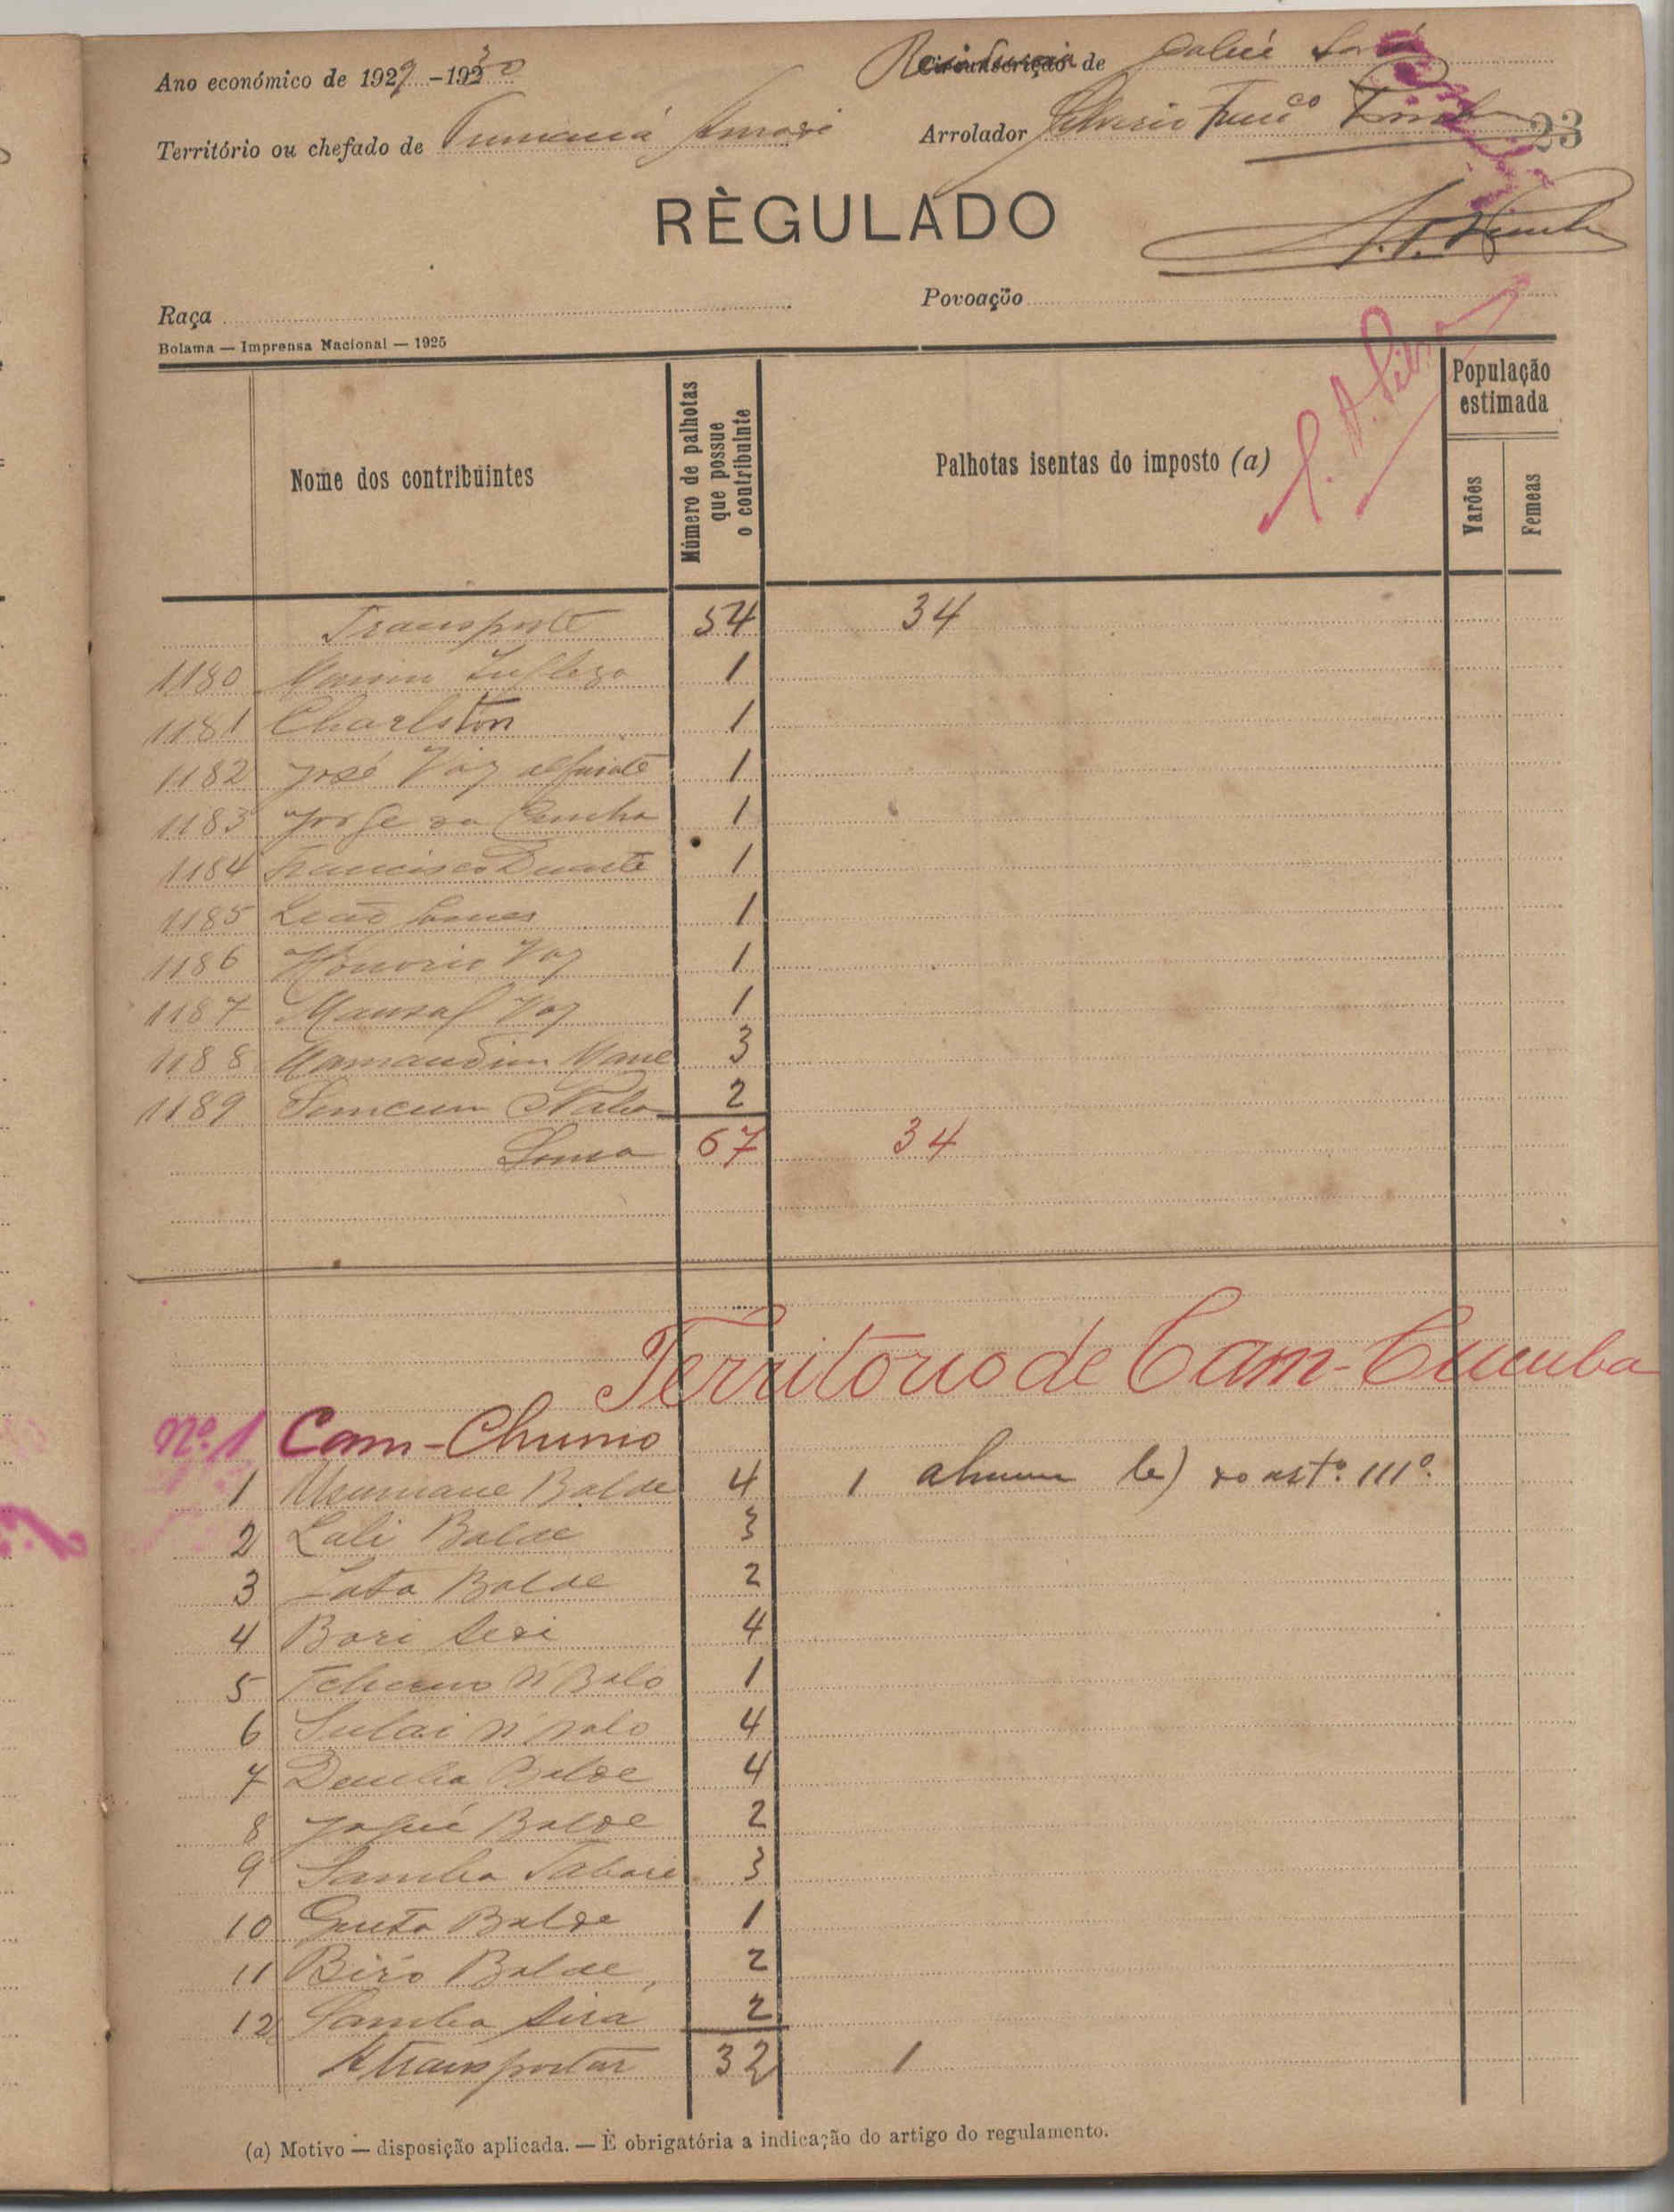 Ano económico de 1929-1930
Residencia de
Território ou chefado de Tumaná
Arrolador Silverio Franco
23
RÈGULADO
Raça
Povoação
Bolama — Imprensa Nacional — 1925
Nome dos contribuintes
Múmero de palhotas que possue o contribuinte
Palhotas isentas do imposto (a)
População estimada
Varões
Femeas
Transporte 54 34
1180 1
1181 Charlston 1
1182 José Vaz alfaiate 1
1183 Jorge da Cunha 1
1184 Francisco Duarte 1
1185 Leão 1
1186 Honorio Vaz 1
1187 Mansal Vaz 1
1188 Mamandim Mané 3
1189 2
Soma 67 34
Território de Cam-Cumba
Nº 1 Cam-Chumo
1 Usumane Balde 4 1 do artº 111º
2 Lali Balde 3
3 Balde 2
4 Bori 4
5 Tcherno N'Balo 1
6 Sulai N'Balo 4
7 Demba Balde 4
8 Balde 2
9 Samba 3
10 Balde 1
11 Biró Balde 2
12 Samba Sirá 2
A transportar 32 1
(a) Motivo — disposição aplicada. — È obrigatória a indicação do artigo do regulamento.